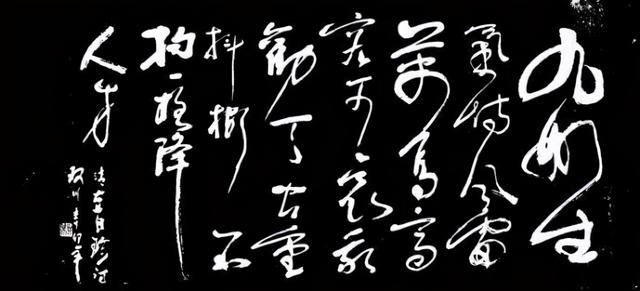 九州生
氣恃风雷
萬馬齊喑
究可哀我
勸天公重
抖擞不
拘一格降
人才
自珍诗